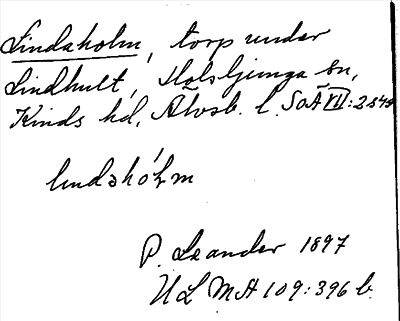 Lindaholm, torp under
Lindhult, Holsljunga sn,
Kinds hd, Älvsb. l. SOÄ VII:2 s 49
lındahólm
P. Leander 1897
ULMA 109:396 b.